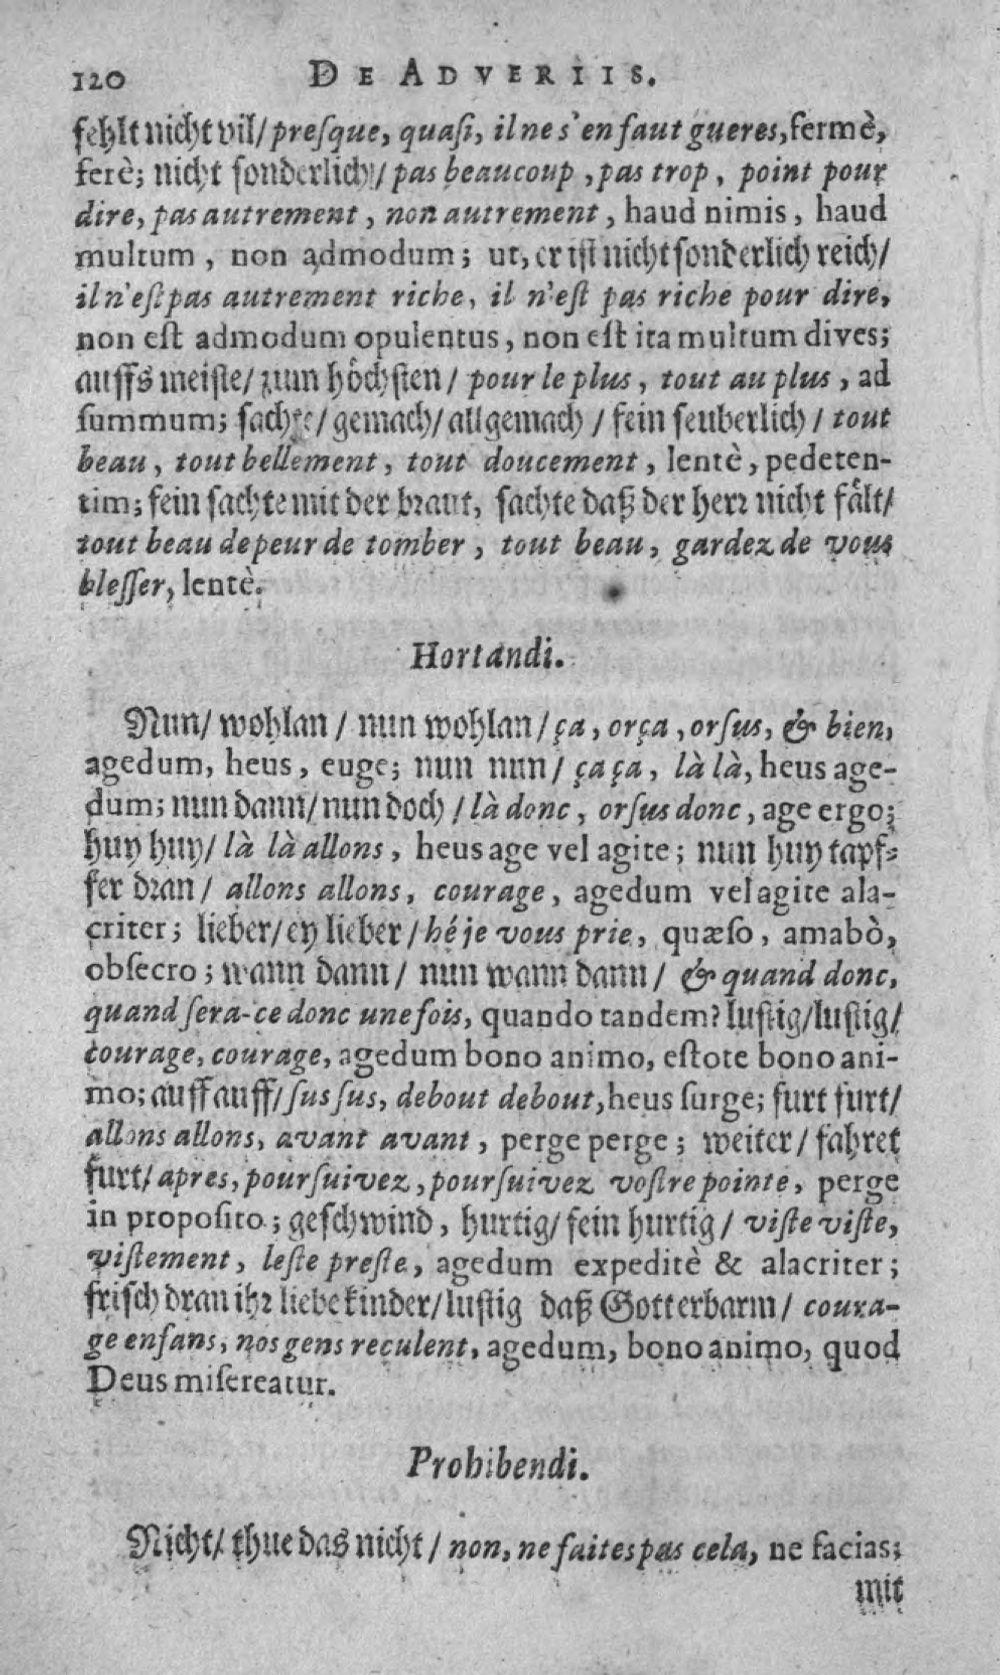 120 DE ADVERIIS.
fehlt nicht vil/ preſque, quaſi, il ne s'en faut gueres, fermè,
ferè; nicht ſonderlich/ pas beaucoup, pas trop, point pour
dire, pas autrement, non autrement, haud nimis, haud
multum, non admodum; ut, er iſt nicht ſonderlich reich/
il n'eſt pas autrement riche, il n'eſt pas riche pour dire,
non eſt admodum opulentus, non eſt ita multum dives;
auffs meiſte/ zum hoͤchſten/ pour le plus, tout au plus, ad
ſummum; ſachte/ gemach/ allgemach/ fein ſeuberlich/ tout
beau, tout bellement, tout doucement, lentè, pedeten-
tim; fein ſachte mit der braut, ſachte daß der herr nicht faͤlt/
tout beau de peur de tomber, tout beau, gardez de vous
bleſſer, lentè.
Hortandi.
Nun/ wohlan/ nun wohlan/ ça, orça, orſus, & bien,
agedum, heus, euge; nun nun/ ça ça, là là, heus age-
dum; nun dann/ nun doch/ là donc, orſus donc, age ergo;
huy huy/ là là allons, heus age vel agite; nun huy tapf-
fer dran/ allons allons, courage, agedum vel agite ala-
criter; lieber/ ey lieber/ hé je vous prie, quæſo, amabò,
obſecro; wann dann/ nun wann dann/ & quand donc,
quand ſera-ce donc une fois, quando tandem? luſtig/ luſtig/
courage, courage, agedum bono animo, eſtote bono ani-
mo; auff auff/ ſus ſus, debout debout, heus ſurge; furt furt/
allons allons, avant avant, perge perge; weiter/ fahret
furt/ apres, pourſuivez, pourſuivez voſtre pointe, perge
in propoſito; geſchwind, hurtig/ fein hurtig/ viſte viſte,
viſtement, leſte preſte, agedum expeditè & alacriter;
friſch dran ihr liebe kinder/ luſtig daß Gott erbarm/ coura-
ge enfans, nos gens reculent, agedum, bono animo, quod
Deus miſereatur.
Prohibendi.
Nicht/ thue das nicht/ non, ne faites pas cela, ne facias;
mit